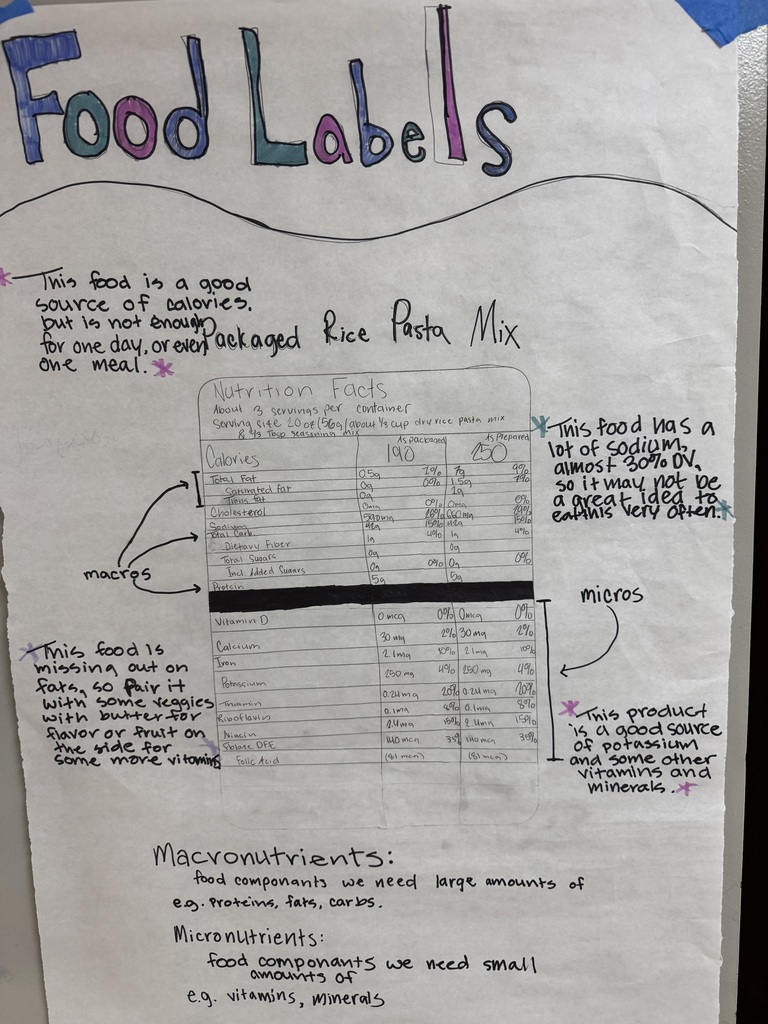 Food Labels
* This food is a good
source of calories.
but is not enough
for one day, or even
one meal. *
Packaged Rice Pasta Mix
Nutrition Facts
About 3 servings per container
Serving size 2.0 oz (56g/about 1/3 cup dry rice pasta mix
& 1 1/3 Tbsp seasoning mix
As Packaged As Prepared
Calories 190 250
Total Fat 0.5g 1% 7g 9%
Saturated fat 0g 0% 1.5g 7%
Trans fat 0g 1g
Cholesterol 0mg 0% 0mg 0%
Sodium 590mg
Total Carb. 42g 15% 42g 15%
Dietary Fiber 1g 4% 1g 4%
Total Sugars 0g 0g
Incl. Added Sugars 0g 0% 0g 0%
Protein 5g 5g
Vitamin D 0mcg 0% 0mcg 0%
Calcium 30mg 2% 30mg 2%
Iron 2.1mg 10% 2.1mg 10%
Potassium 250mg 4% 250mg 4%
Thiamin 0.24mg 20% 0.24mg 20%
Riboflavin 0.1mg 8% 0.1mg 8%
Niacin 2.4mg 15% 2.4mg 15%
Folate DFE 140mcg 35% 140mcg 35%
Folic Acid (81mcn) (81mcn)
macros
* This food has a
lot of sodium,
almost 30% DV,
so it may not be
a great idea to
eat this very often. *
micros
* This food is
missing out on
fats, so pair it
with some veggies
with butter for
flavor or fruit on
the side for
some more vitamins
* This product
is a good source
of potassium
and some other
vitamins and
minerals. *
Macronutrients:
food componants we need large amounts of
e.g. Proteins, fats, carbs.
Micronutrients:
food componants we need small
amounts of
e.g. vitamins, minerals